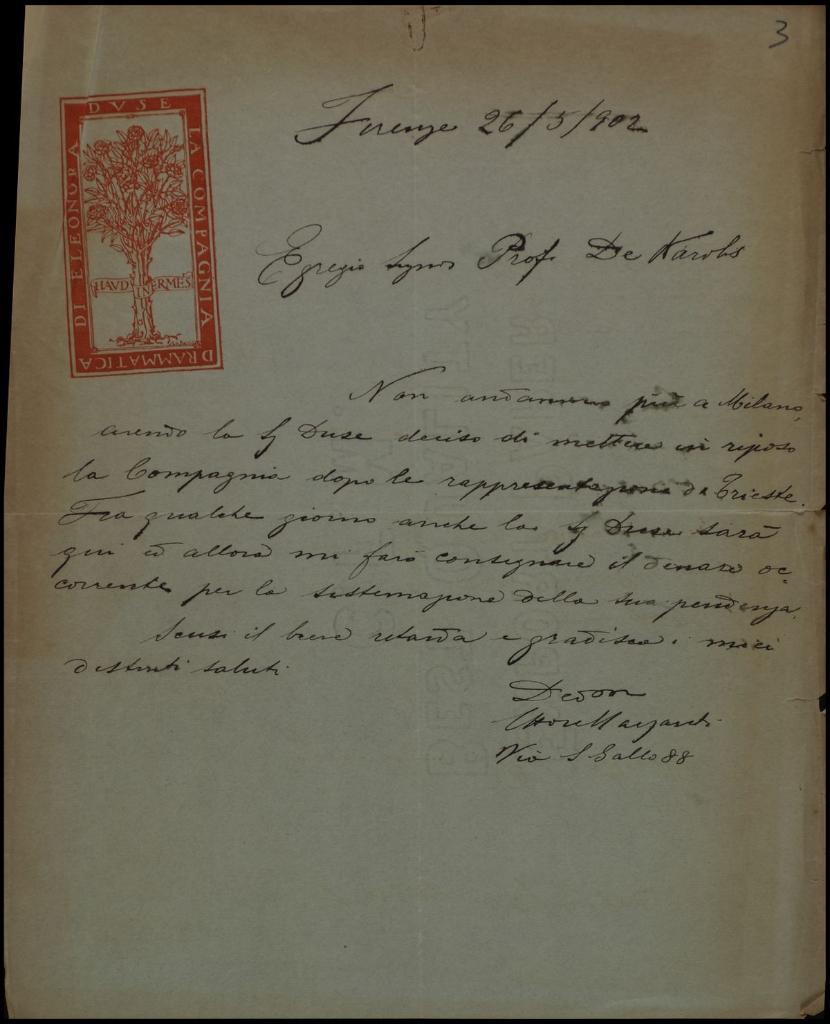 3
LA COMPAGNIA DRAMMATICA DI ELEONORA DVSE
HAVD INERMES
Firenze 26/5/902
Egregio Signor Prof. De Karolis
Non andiamo più a Milano,
avendo la Sg Duse deciso di mettere in riposo
la Compagnia dopo le rappresentazioni di Trieste.
Fra qualche giorno anche la Sg Duse sarà
qui ed allora mi farò consegnare il denaro oc-
corrente per la sistemazione della sua pendenza.
Scusi il breve ritardo e gradisca i miei
distinti saluti
Devmo
Via S Gallo 88